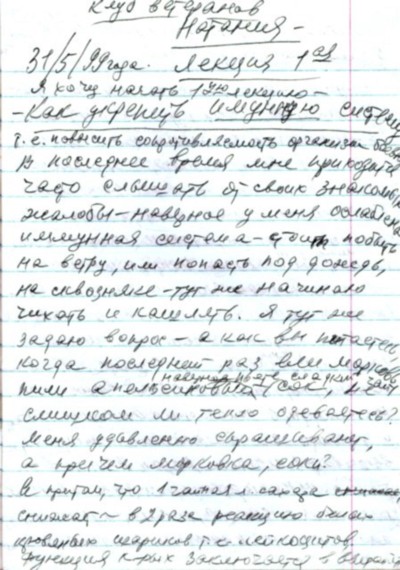 Клуб ветеранов
Натания -
31/5/99 года. Лекция 1ая
Я хочу начать 1ую лекцию -
- Как укрепить имунную систему
т.е. повысить сопротивляемость организма
В последнее время мне приходится
часто слышать от своих знакомых
жалобы - наверное у меня ослаблена
иммунная система - стоит побыть
на ветру, или попасть под дождь,
на сквозняке - тут же начинаю
чихать и кашлять. Я тут же
задаю вопрос - а как вы питаетесь,
когда последний раз ели морковь,
пили апельсиновый сок,
слишком ли тепло одеваетесь?
Меня удивленно спрашивают,
а причем морковка, соки?
А притом, что 1 чайная л. сахара
снижает ~ в 2 раза реакцию белых
кровяных шариков т.е. лейкоцитов,
функция к-рых заключается в